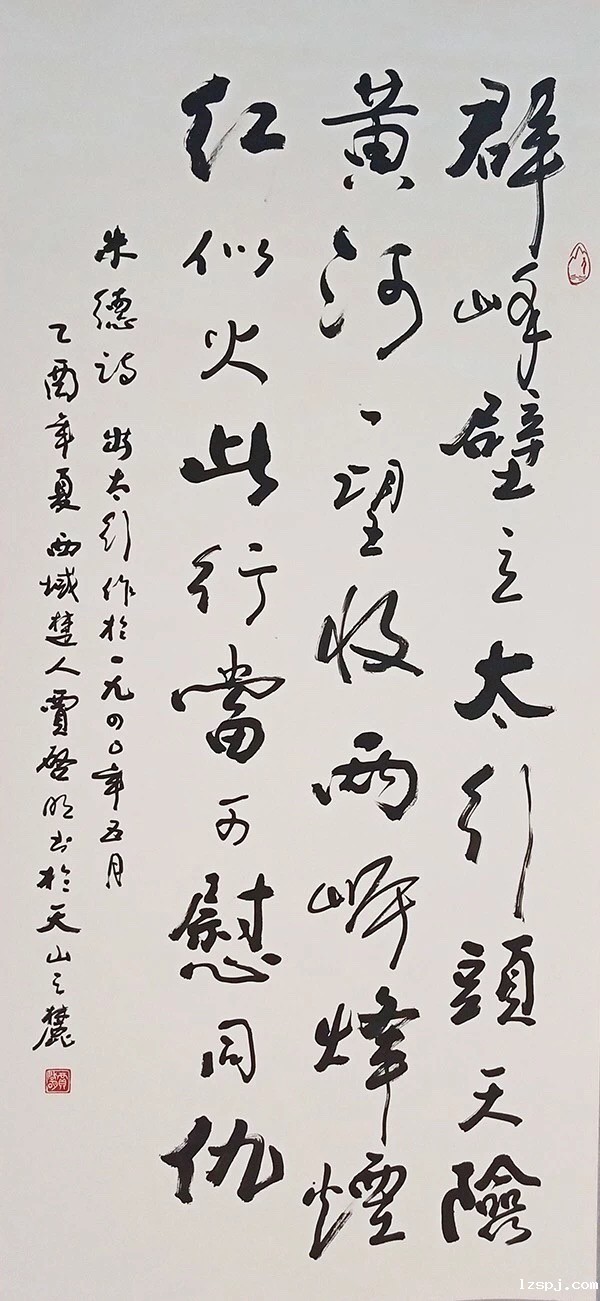 群峰壁立太行頭天險
黄河一望收兩岸烽煙
红似火此行當可慰同仇
朱德詩 出太行 作於一九四〇年五月
乙酉年夏西域楚人賈啓明书於天山之麓
lzspj.com